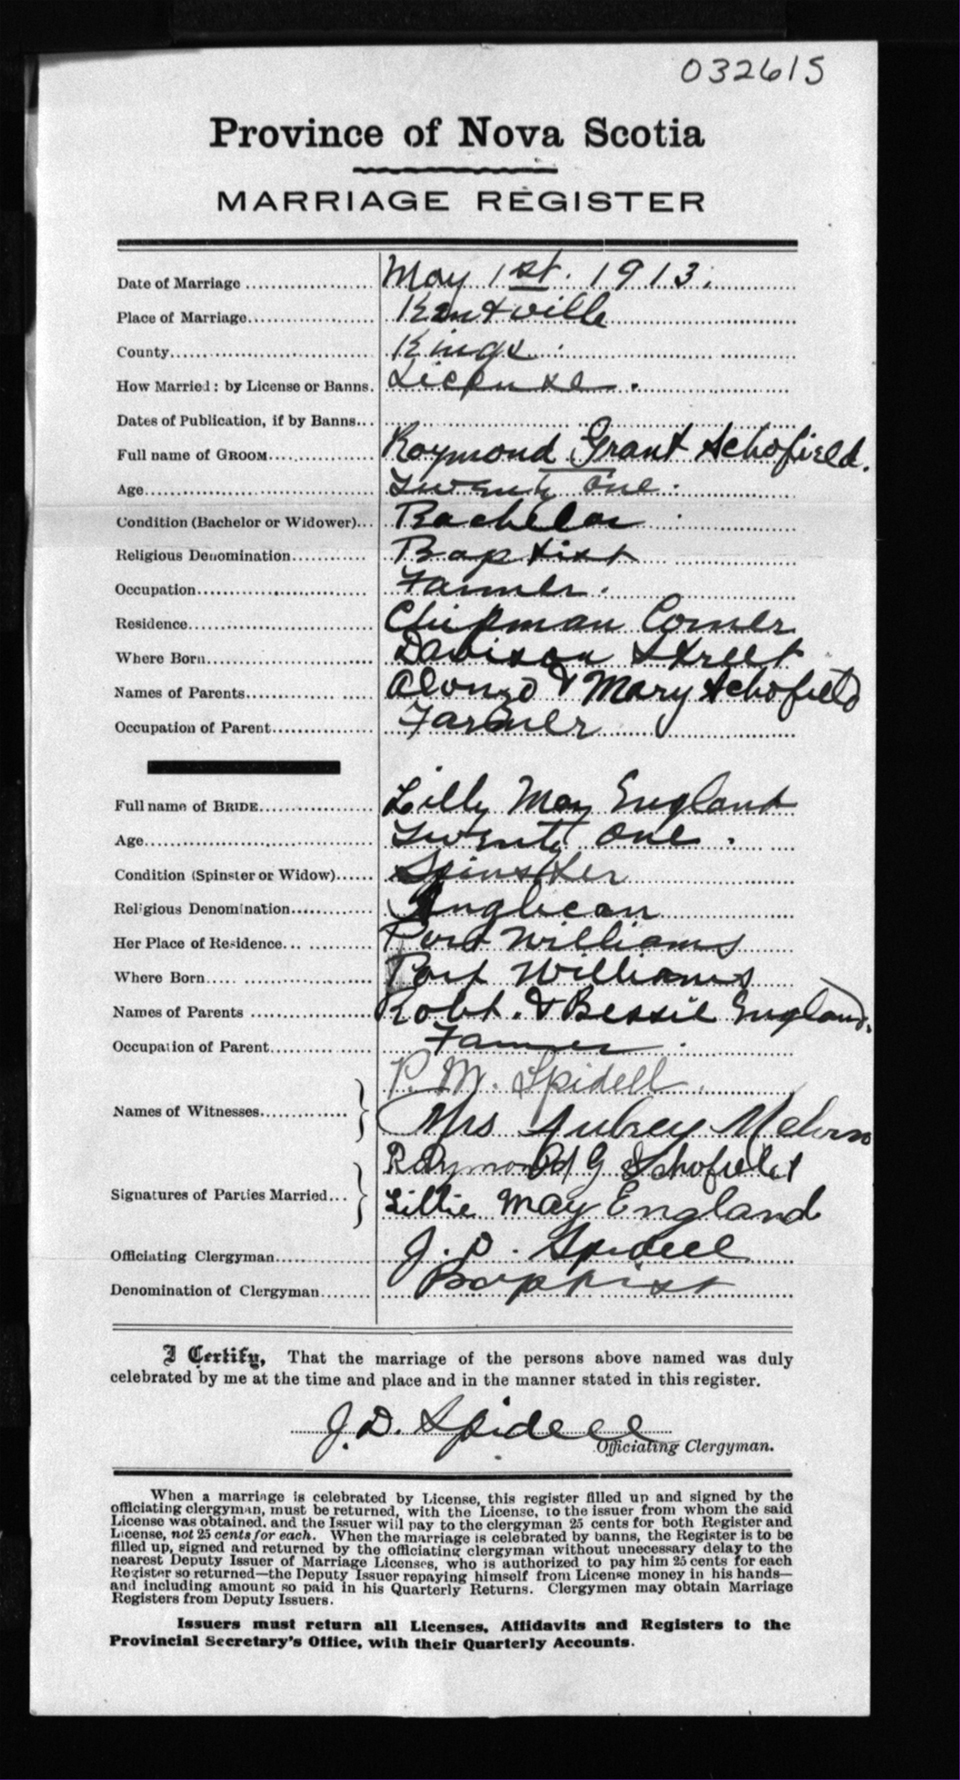 032615
Province of Nova Scotia
MARRIAGE REGISTER
Date of Marriage May 1st. 1913.
Place of Marriage Kentville
County Kings
How Married: by License or Banns. License.
Dates of Publication, if by Banns
Full name of GROOM Raymond Grant Schofield.
Age Twenty One.
Condition (Bachelor or Widower) Bachelor
Religious Denomination Baptist
Occupation Farmer.
Residence Chipman Corner
Where Born Davison Street
Names of Parents Alonzo & Mary Schofield
Occupation of Parent Farmer
Full name of BRIDE Lilly May England
Age Twenty One.
Condition (Spinster or Widow) Spinster
Religious Denomination Anglican
Her Place of Residence Port Williams
Where Born Port Williams
Names of Parents Robt. & Bessie England.
Occupation of Parent Farmer
P. M. Spidell.
Names of Witnesses
Mrs Aubrey Melvin
Raymond G Schofield
Signatures of Parties Married
Lillie May England
Officiating Clergyman J. D. Spidell
Denomination of Clergyman Baptist
I Certify, That the marriage of the persons above named was duly
celebrated by me at the time and place and in the manner stated in this register.
J. D. Spidell
Officiating Clergyman.
When a marriage is celebrated by License, this register filled up and signed by the
officiating clergyman, must be returned, with the License, to the issuer from whom the said
License was obtained, and the Issuer will pay to the clergyman 25 cents for both Register and
License, not 25 cents for each. When the marriage is celebrated by banns, the Register is to be
filled up, signed and returned by the officiating clergyman without unnecessary delay to the
nearest Deputy Issuer of Marriage Licenses, who is authorized to pay him 25 cents for each
Register so returned—the Deputy Issuer repaying himself from License money in his hands—
and including amount so paid in his Quarterly Returns. Clergymen may obtain Marriage
Registers from Deputy Issuers.
Issuers must return all Licenses, Affidavits and Registers to the
Provincial Secretary's Office, with their Quarterly Accounts.